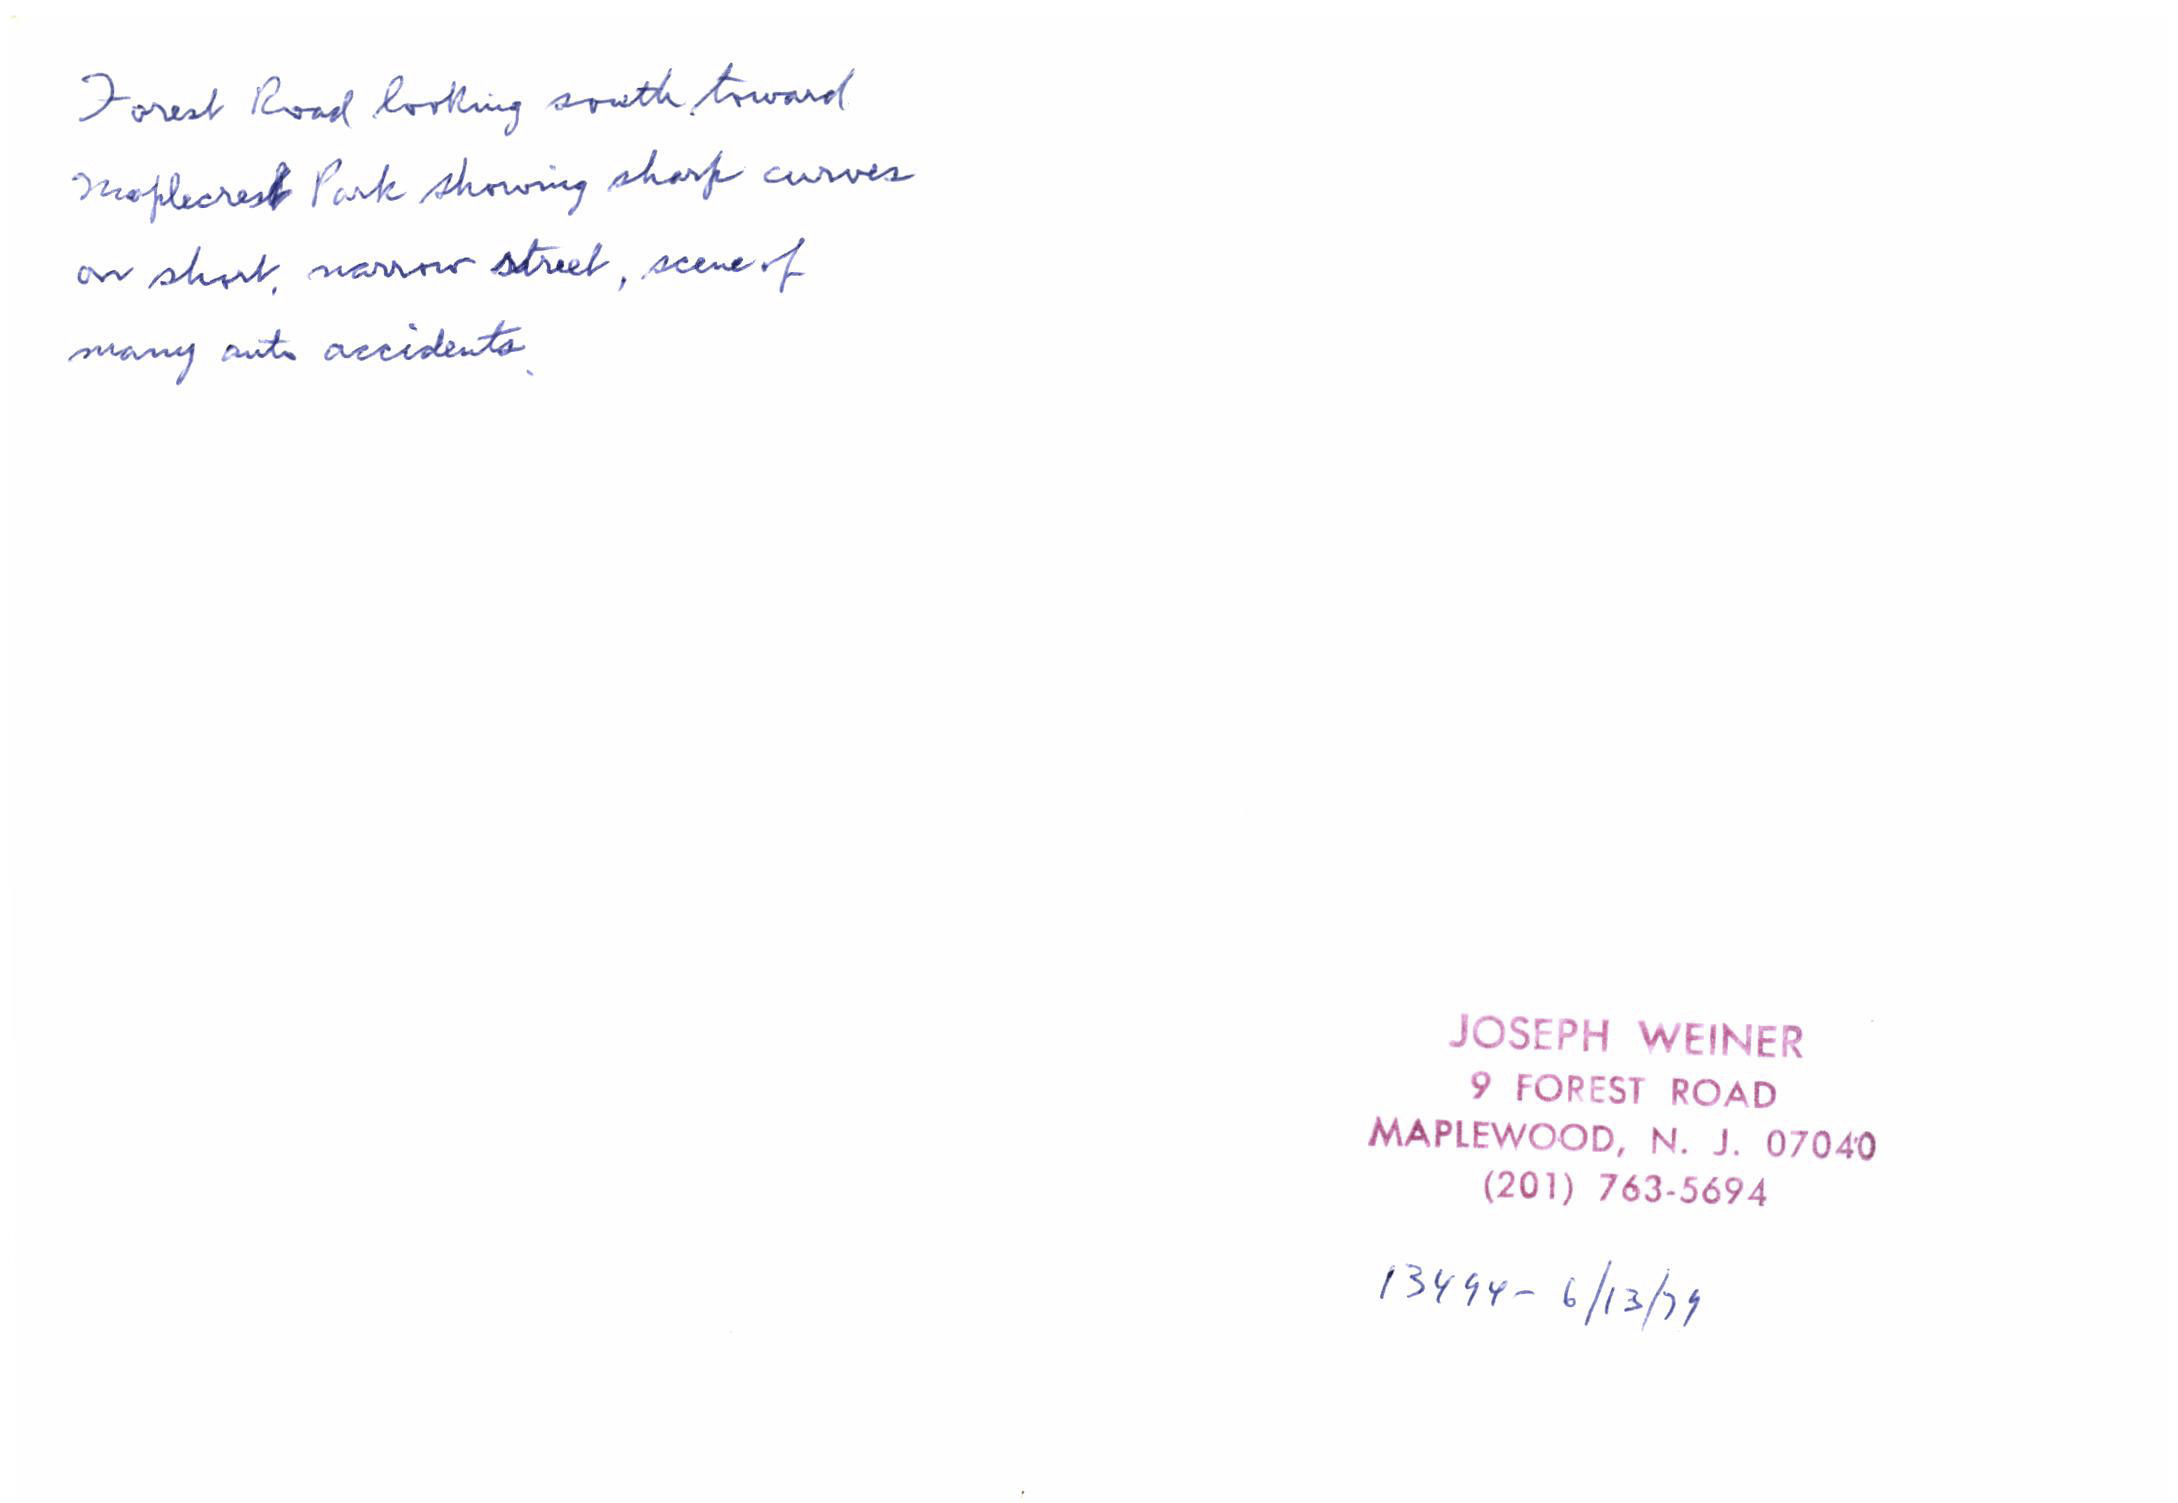 Forest Road looking south toward
Maplecrest Park showing sharp curves
on short, narrow street, scene of
many auto accidents.
JOSEPH WEINER
9 FOREST ROAD
MAPLEWOOD, N. J. 07040
(201) 763-5694
13494- 6/13/79